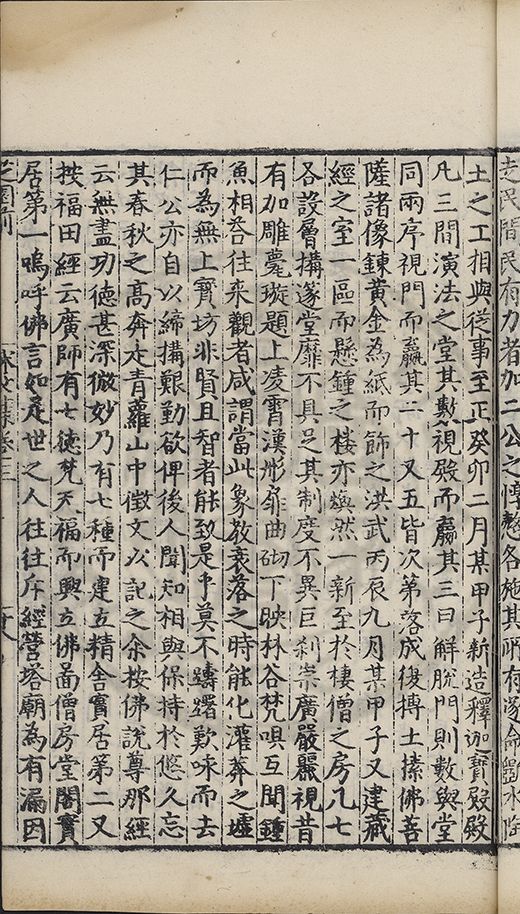 走民間民有力者加二公之慱慤各施其所有遂命斵木陶
土之工相與從事至正癸卯二月某甲子新造釋迦寶殿殿
凡三間演法之堂其數視殿而贏其三曰解脫門則數與堂
同兩序視門而贏其二十又五皆次第落成復摶土搸佛菩
薩諸像鍊黃金為紙而飾之洪武丙辰九月某甲子又建藏
經之室一區而懸鍾之樓亦煥然一新至於棲僧之房凡七
各設層搆邃堂靡不具足其制度不異巨刹崇廣嚴麗視昔
有加雕甍璇題上凌霄漢彤扉曲砌下映林谷梵唄互聞鍾
魚相荅往来觀者咸謂當此象教衰落之時能化灌莽之墟
而為無上寳坊非賢且智者能致是乎莫不躊躇歎咏而去
仁公亦自以締搆艱勤欲俾後人聞知相與保持於悠久忘
其春秋之高奔走青蘿山中徴文以記之余按佛說尊那經
云無盡功德甚深微妙乃有七種而建立精舍實居第二又
按福田經云廣師有七德梵天福而興立佛啚僧房堂閣實
居第一嗚呼佛言如是世之人往往斥經營塔廟為有漏因
芝園前
卷三